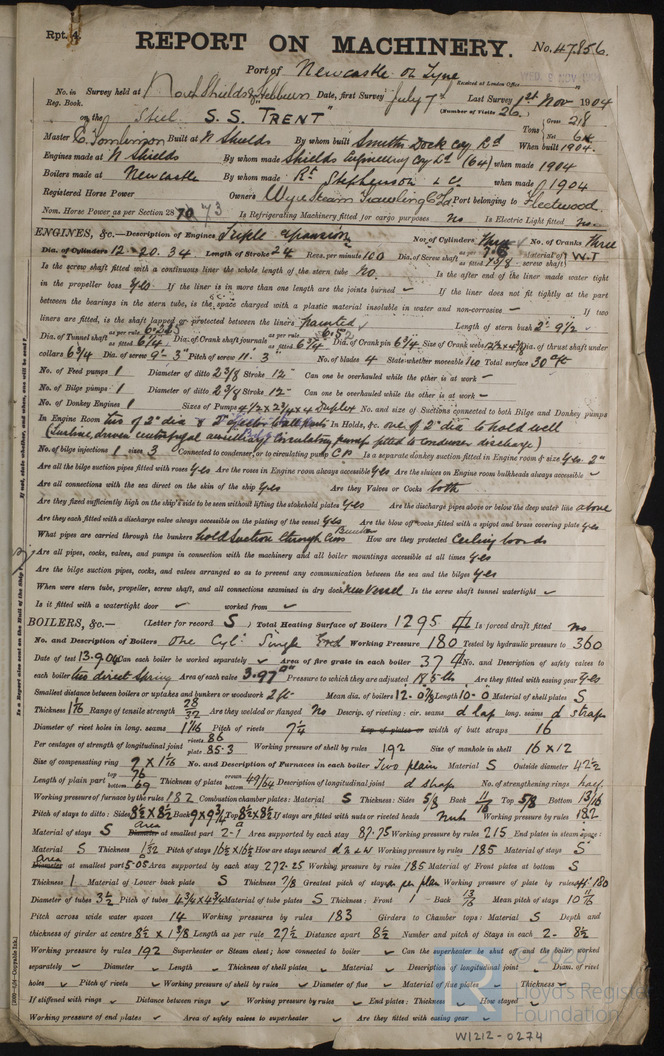 Rpt. 4.
REPORT ON MACHINERY. No. 47856.
Port of Newcastle on Tyne
Received at London Office
WED. 9 NOV 1904
No. in Survey held at North Shields & Hebburn Date, first Survey July 7th Last Survey 1st Nov 1904
Reg. Book. (Number of Visits 26)
on the Steel S.S. "TRENT" Tons Gross 218 Net 64
Master C. Tomlinson Built at N Shields By whom built Smiths Dock Coy Ld When built 1904.
Engines made at N Shields By whom made Shields Engineering Coy Ld (64) when made 1904
Boilers made at Newcastle By whom made Rt Stephenson & Co when made 1904
Registered Horse Power Owners Wyre Steam Trawling Co Ld Port belonging to Fleetwood.
Nom. Horse Power as per Section 28 70 73 Is Refrigerating Machinery fitted for cargo purposes no Is Electric Light fitted no.
ENGINES, &c.—Description of Engines Triple expansion No. of Cylinders Three No. of Cranks Three
Dia. of Cylinders 12 - 20. 34 Length of Stroke 24 Revs. per minute 100 Dia. of Screw shaft as per rule 7.6 as fitted 7 5/8 Material of screw shaft W.I
Is the screw shaft fitted with a continuous liner the whole length of the stern tube No. Is the after end of the liner made water tight
in the propeller boss yes If the liner is in more than one length are the joints burned – If the liner does not fit tightly at the part
between the bearings in the stern tube, is the space charged with a plastic material insoluble in water and non-corrosive – If two
liners are fitted, is the shaft lapped or protected between the liners Painted Length of stern bush 2'- 9½
Dia. of Tunnel shaft as per rule 6.205 as fitted 6¾ Dia. of Crank shaft journals as per rule 6.52 as fitted 6¾ Dia. of Crank pin 6¾ Size of Crank webs Dia. of thrust shaft under
collars 6¾ Dia. of screw 9'- 3" Pitch of screw 11- 3 No. of blades 4 State whether moveable No Total surface 30 ft
No. of Feed pumps 1 Diameter of ditto 2 3/8 Stroke 12 Can one be overhauled while the other is at work –
No. of Bilge pumps 1 Diameter of ditto 2 3/8 Stroke 12 Can one be overhauled while the other is at work –
No. of Donkey Engines 1 Sizes of Pumps Duplex No. and size of Suctions connected to both Bilge and Donkey pumps
In Engine Room two of 2" dia & 2" Ejector In Holds, &c. one of 2" dia to hold well
(Turbine driven centrifugal circulating pump fitted to condenser discharge)
No. of bilge injections 1 sizes 3 Connected to condenser, or to circulating pump C.P Is a separate donkey suction fitted in Engine room & size yes 2"
Are all the bilge suction pipes fitted with roses yes Are the roses in Engine room always accessible yes Are the sluices on Engine room bulkheads always accessible –
Are all connections with the sea direct on the skin of the ship yes Are they Valves or Cocks both
Are they fixed sufficiently high on the ship's side to be seen without lifting the stokehold plates yes Are the discharge pipes above or below the deep water line above
Are they each fitted with a discharge valve always accessible on the plating of the vessel yes Are the blow off cocks fitted with a spigot and brass covering plate yes
What pipes are carried through the bunkers hold suction through Cross Bunker How are they protected Ceiling boards
Are all pipes, cocks, valves, and pumps in connection with the machinery and all boiler mountings accessible at all times yes
Are the bilge suction pipes, cocks, and valves arranged so as to prevent any communication between the sea and the bilges yes
When were stern tube, propeller, screw shaft, and all connections examined in dry dock New vessel Is the screw shaft tunnel watertight –
Is it fitted with a watertight door – worked from –
BOILERS, &c.— (Letter for record S) Total Heating Surface of Boilers 1295 Is forced draft fitted no
No. and Description of Boilers One Cyl: Single End Working Pressure 180 Tested by hydraulic pressure to 360
Date of test 13-9-04 Can each boiler be worked separately – Area of fire grate in each boiler 37 No. and Description of safety valves to
each boiler two direct Spring Area of each valve 3.97 Pressure to which they are adjusted 185 lbs Are they fitted with easing gear yes
Smallest distance between boilers or uptakes and bunkers or woodwork 2 ft Mean dia. of boilers 12- 0 7/8 Length 10- 0 Material of shell plates S
Thickness 1 1/16 Range of tensile strength 28/32 Are they welded or flanged No Descrip. of riveting: cir. seams d lap long. seams d straps
Diameter of rivet holes in long. seams 1 1/16 Pitch of rivets 7¼ Lap of plates or width of butt straps 16
Per centages of strength of longitudinal joint rivets 86 plate 85.3 Working pressure of shell by rules 192 Size of manhole in shell 16 x 12
Size of compensating ring 9 x 1 1/16 No. and Description of Furnaces in each boiler Two plain Material S Outside diameter 42½
Length of plain part top 76 bottom 69 Thickness of plates crown bottom 49/64 Description of longitudinal joint d strap No. of strengthening rings half
Working pressure of furnace by the rules 182 Combustion chamber plates: Material S Thickness: Sides 5/8 Back 11/16 Top 5/8 Bottom 13/16
Pitch of stays to ditto: Sides 8½x8½ Back 9x9¾ Top 8½x8½ If stays are fitted with nuts or riveted heads Nuts Working pressure by rules 182
Material of stays S Area Diameter at smallest part 2.1 Area supported by each stay 87.75 Working pressure by rules 215 End plates in steam space:
Material S Thickness 1 1/32 Pitch of stays 16½x16½ How are stays secured d N & W Working pressure by rules 185 Material of stays S
Area Diameter at smallest part 5.05 Area supported by each stay 272.25 Working pressure by rules 185 Material of Front plates at bottom S
Thickness 1 Material of Lower back plate S Thickness 7/8 Greatest pitch of stays as per plan Working pressure of plate by rules 180
Diameter of tubes 3½ Pitch of tubes 4¾x4¾ Material of tube plates S Thickness: Front Back 13/16 Mean pitch of stays 10
Pitch across wide water spaces 14 Working pressures by rules 183 Girders to Chamber tops: Material S Depth and
thickness of girder at centre 8½ x 1 3/8 Length as per rule 27½ Distance apart 8½ Number and pitch of Stays in each 2- 8½
Working pressure by rules 192 Superheater or Steam chest; how connected to boiler – Can the superheater be shut off and the boiler worked
separately – Diameter – Length – Thickness of shell plates – Material – Description of longitudinal joint – Diam. of rivet
holes – Pitch of rivets – Working pressure of shell by rules – Diameter of flue – Material of flue plates – Thickness –
If stiffened with rings – Distance between rings – Working pressure by rules – End plates: Thickness – How stayed –
Working pressure of end plates – Area of safety valves to superheater – Are they fitted with easing gear –
© 2020
Lloyd's Register
Foundation
W1212-0274